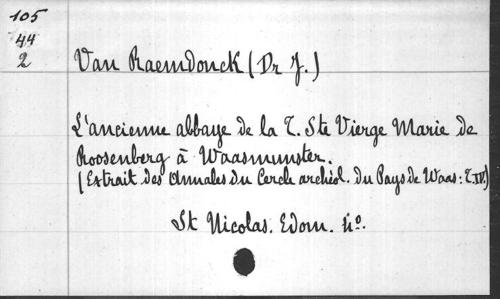 105
44
2
Van Raemdonck (Dr J.)
L'ancienne abbaye de la T. Ste Vierge Marie de
Roosenberg à Waasmunster.
(Extrait des Annales du Cercle archéol. du Pays de Waas: T.
St Nicolas. Edom. 4º.